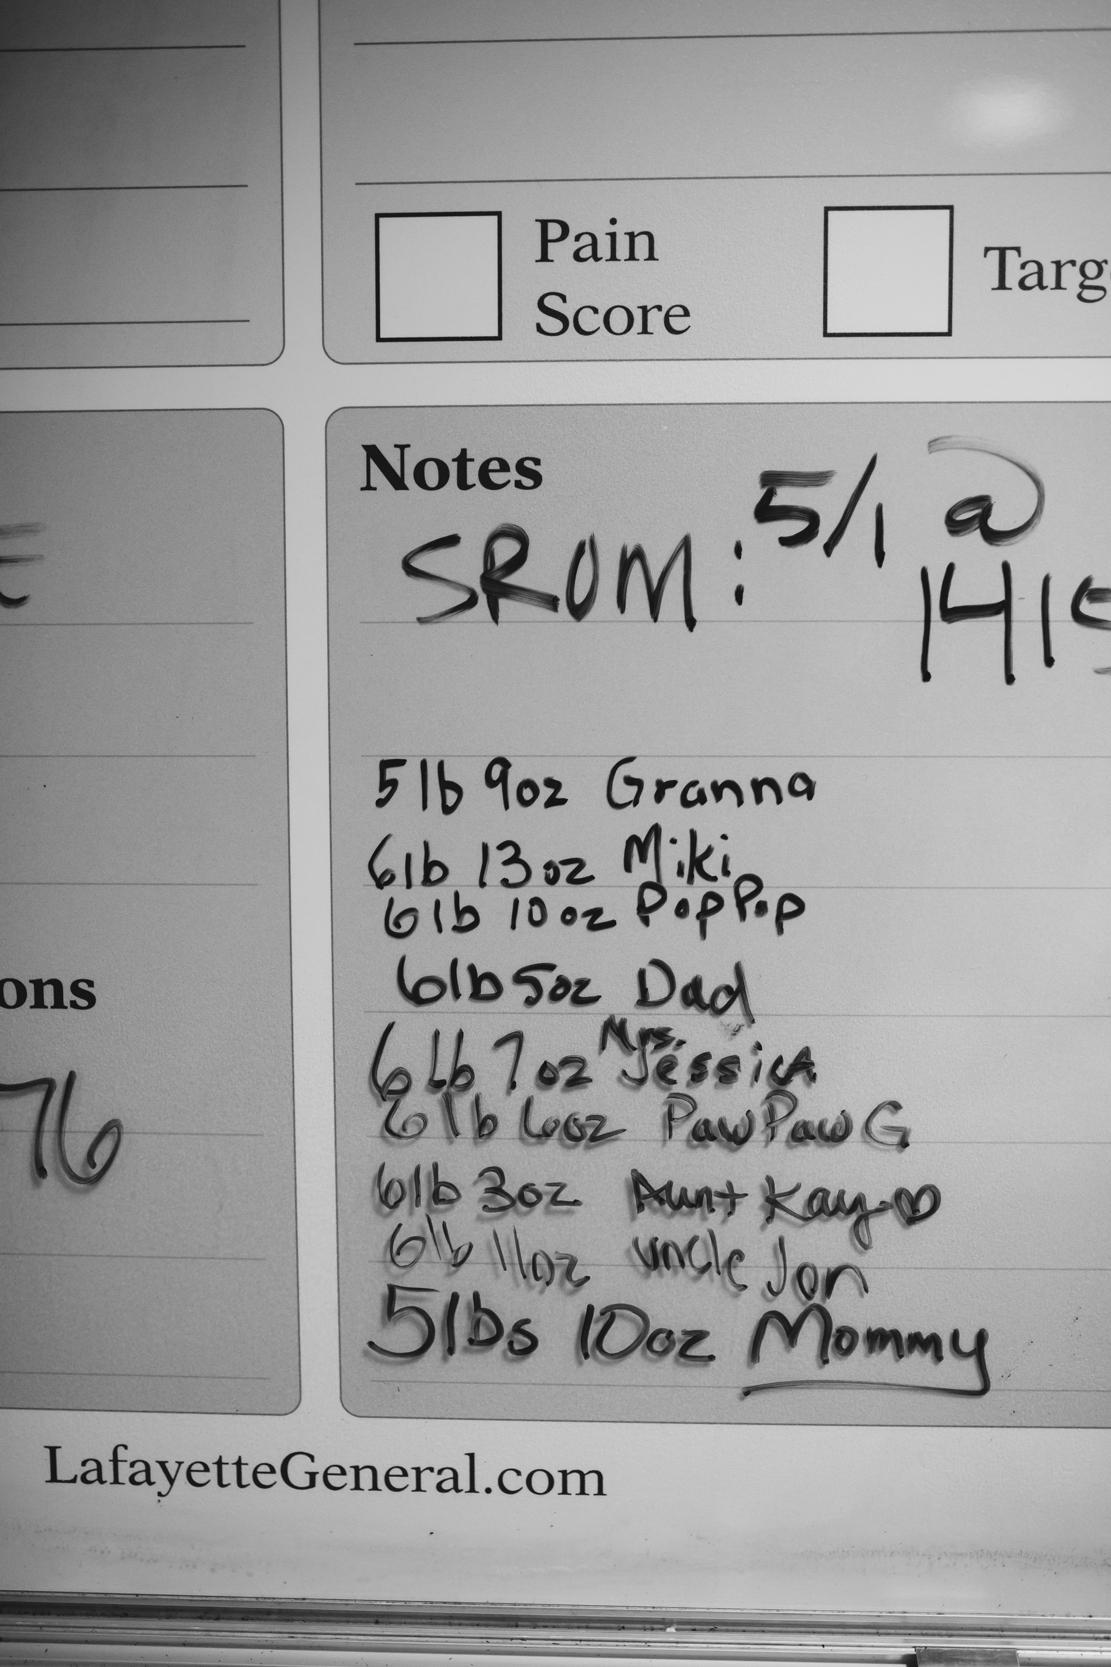 Pain
Score
Targ
Notes
SROM: 5/1 @
1415
5lb 9oz Granna
6lb 13oz Miki
6lb 10oz PopPop
6lb 5oz Dad
6lb 7oz Mrs. Jessica
6lb 6oz PawPaw G
6lb 3oz Aunt Kay ♡
6lb 11oz Uncle Jon
5lbs 10oz Mommy
ons
76
LafayetteGeneral.com